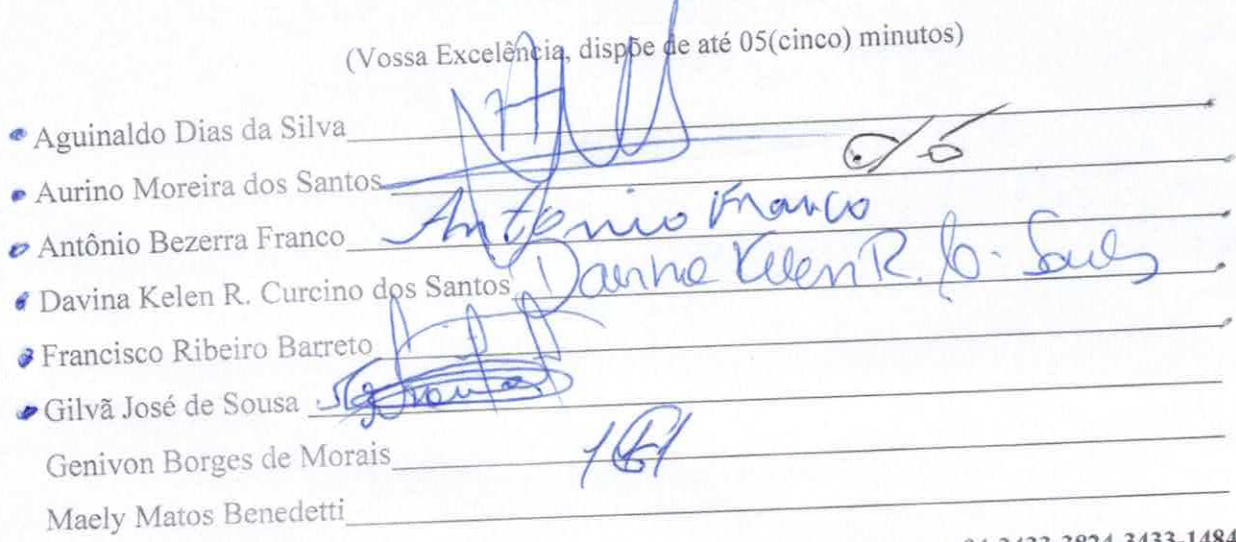 (Vossa Excelência, dispõe de até 05(cinco) minutos)
Aguinaldo Dias da Silva
Aurino Moreira dos Santos
Antônio Bezerra Franco Antonio Franco
Davina Kelen R. Curcino dos Santos Davina Kelen R. C. Santos
Francisco Ribeiro Barreto
Gilvã José de Sousa
Genivon Borges de Morais
Maely Matos Benedetti
3433-3824 3433-1484